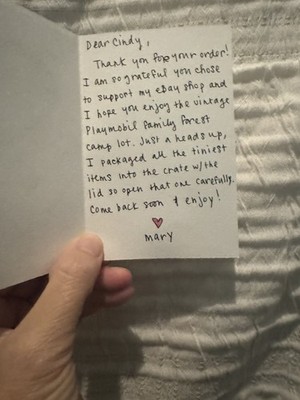 Dear Cindy,
Thank you for your order!
I am so grateful you chose
to support my eBay shop and
I hope you enjoy the vintage
Playmobil family forest
camp lot. Just a heads up,
I packaged all the tiniest
items into the crate w/the
lid so open that one carefully.
Come back soon & enjoy!
mary